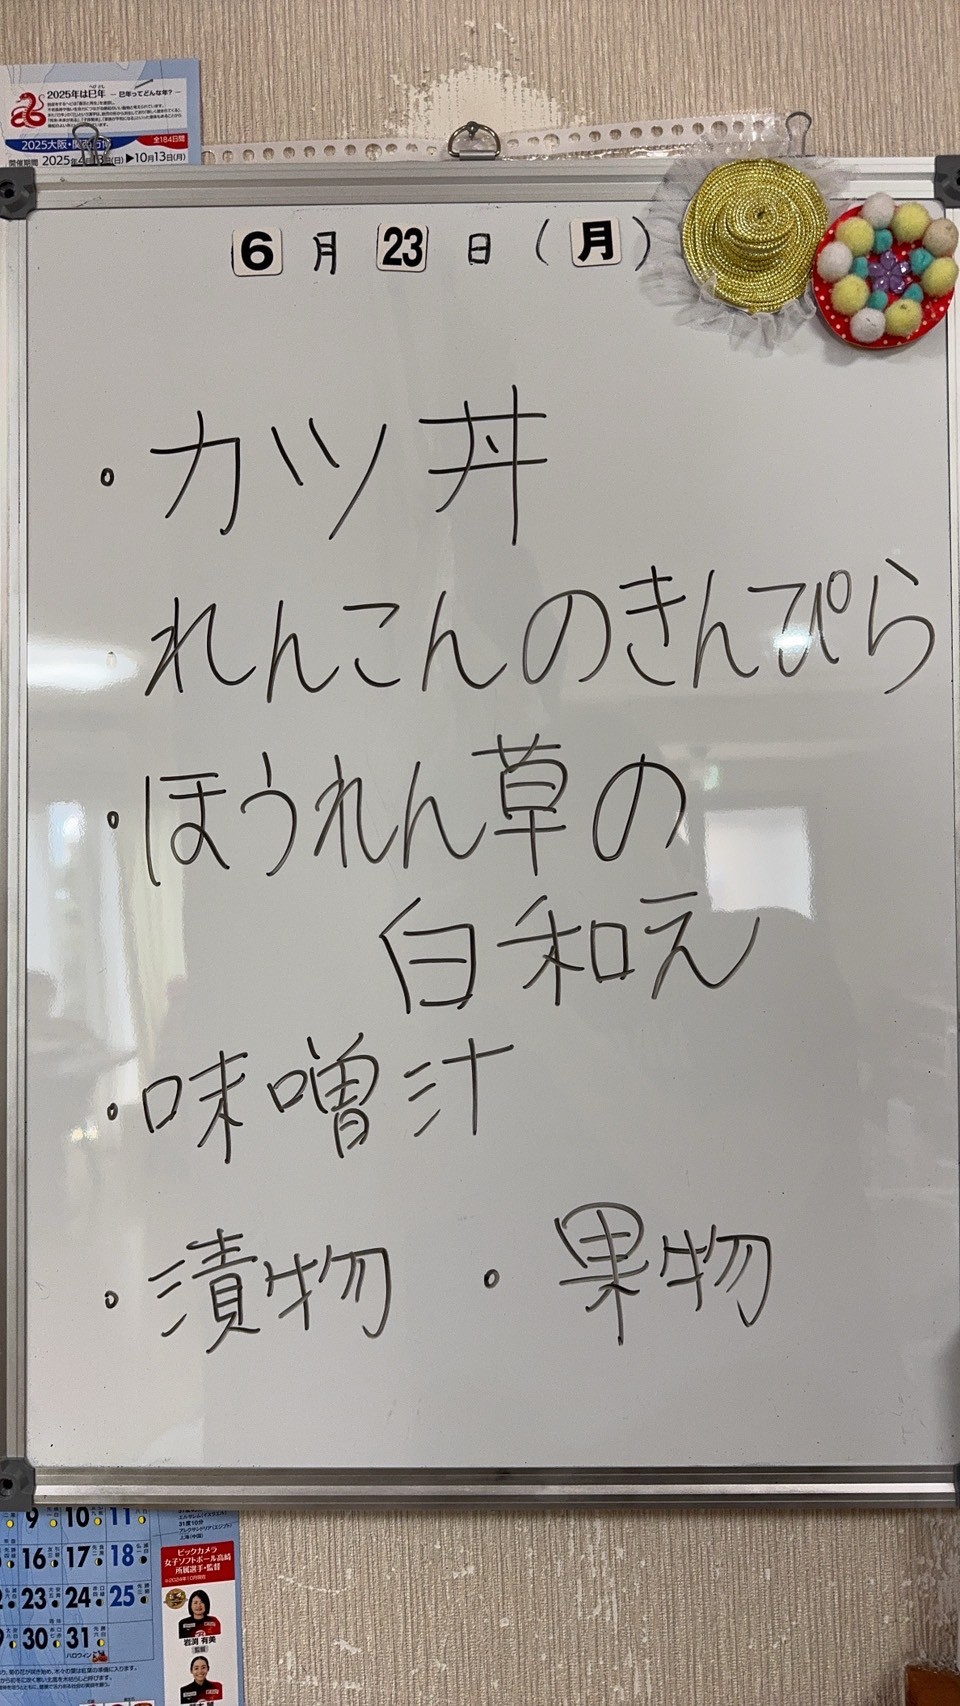 2025年は巳年 ― 巳年ってどんな年? ―
2025大阪・関
全184日間
開催期間 2025年4月 日(日)▶10月13日(月)
6月23日(月)
・カツ丼
れんこんのきんぴら
・ほうれん草の
白和え
・味噌汁
・漬物 ・果物
9 10 11
16 17 18
23 24 25
30 31
ハロウィン
ビックカメラ
女子ソフトボール高崎
所属選手・監督
※2024年10月現在
岩渕 有美
監督